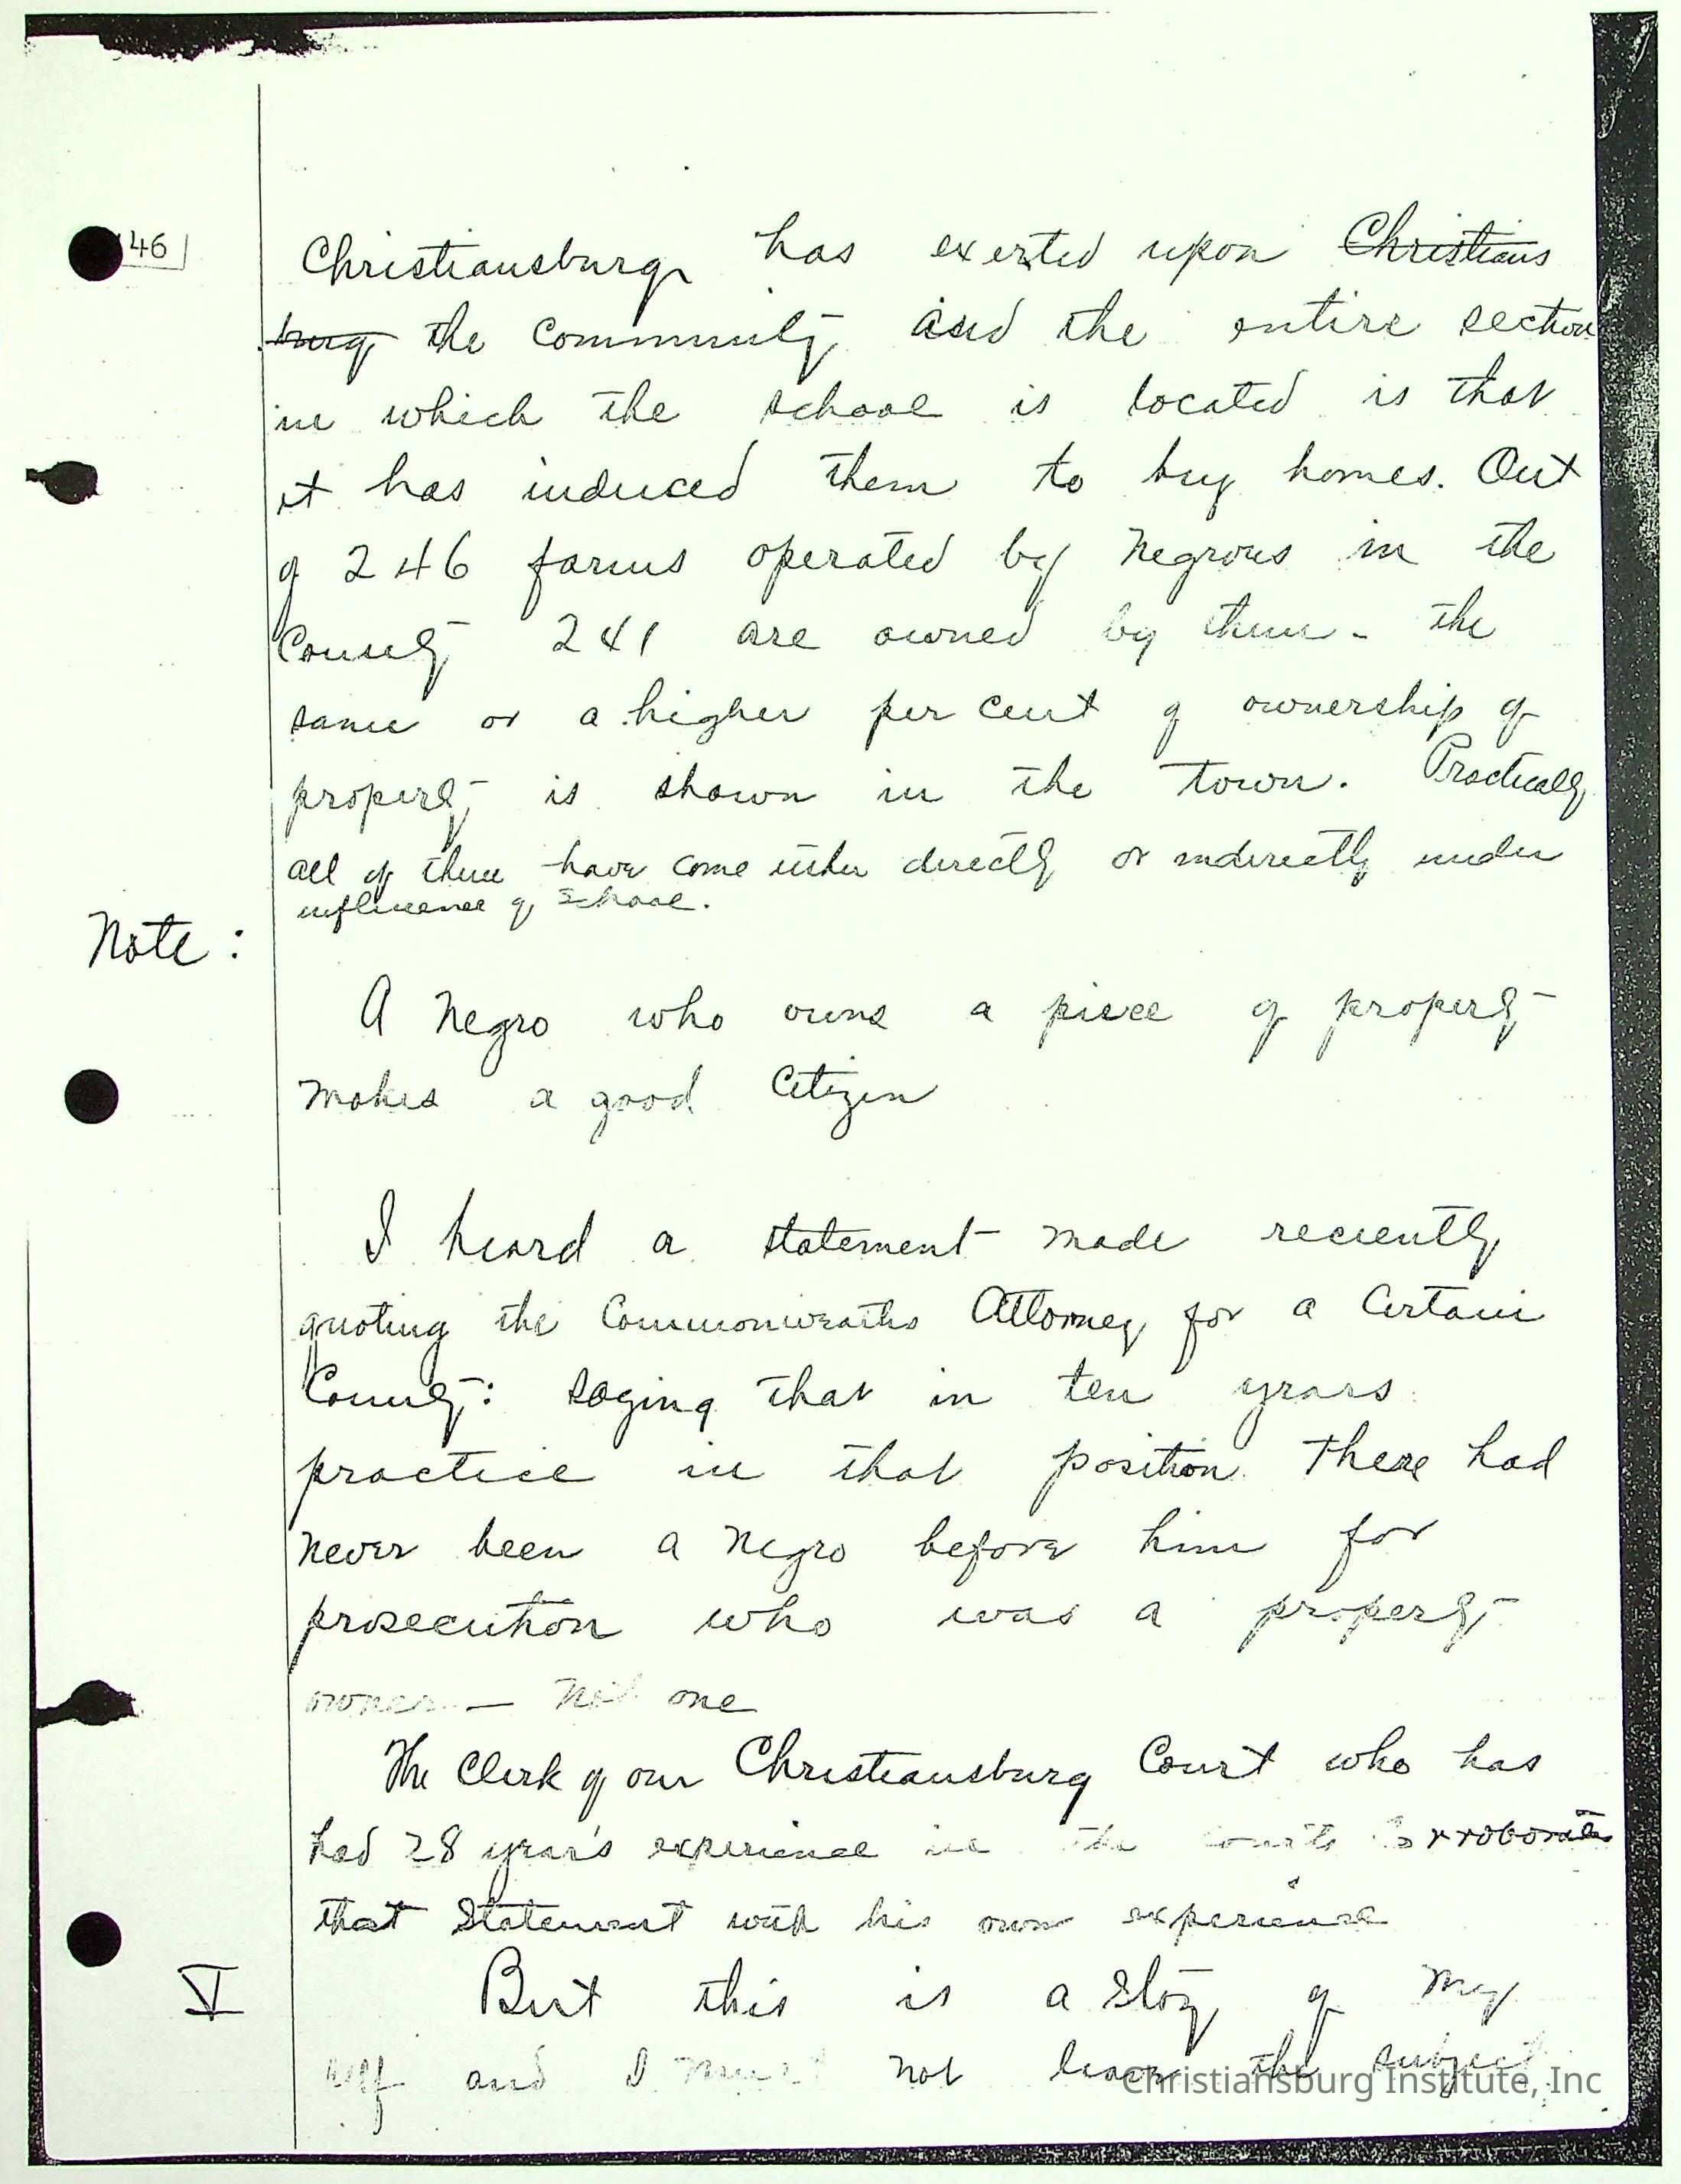 46
Christiansburg has exerted upon Christians
burg the community and the entire section
in which the school is located is that
it has induced them to buy homes. Out
of 246 farms operated by Negroes in the
County 241 are owned by them - the
same or a higher per cent of ownership of
property is shown in the town. Practically
all of them have come either directly or indirectly under
influence of school.
Note:
A Negro who owns a piece of property
makes a good Citizen
I heard a statement made recently
quoting the Commonwealths Attorney for a Certain
County: saying that in ten years
practice in that position there had
never been a Negro before him for
prosecution who was a property
owner — not one
The Clerk of our Christiansburg Court who has
had 28 year's experience in the courts corroborates
that Statement with his own experience
V
But this is a story of my
self and I must not leave the subject
Christiansburg Institute, Inc